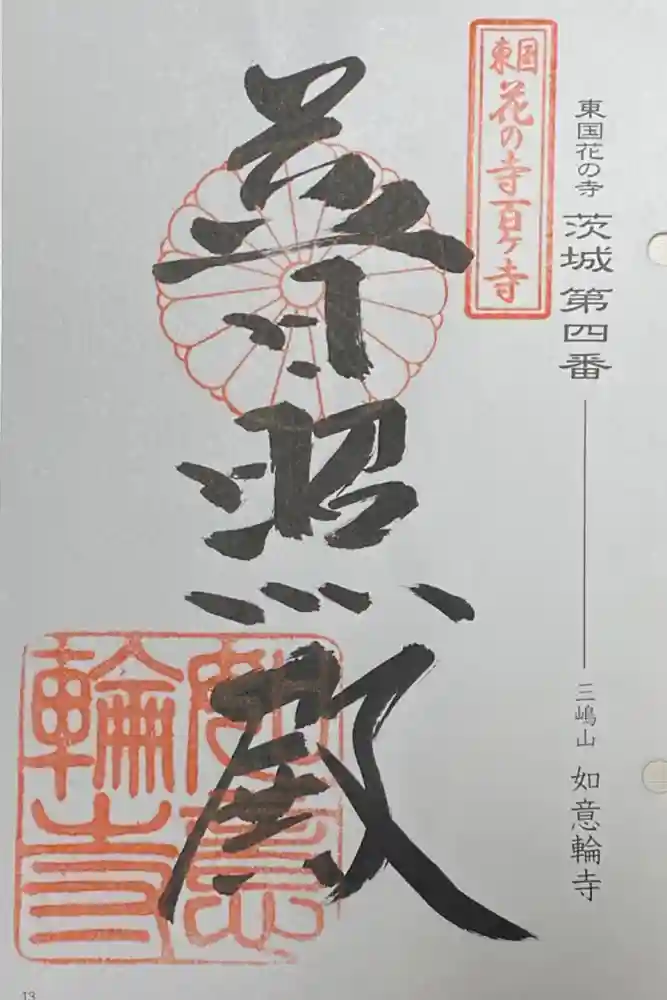 東国花の寺 茨城 第四番
三嶋山 如意輪寺
東国
花の寺百ヶ寺
普照殿
如意
輪寺
13